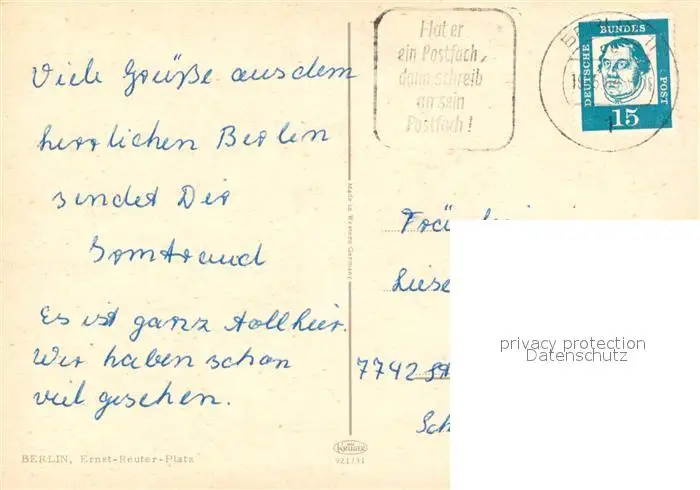 Viele Grüße aus dem
herrlichen Berlin
sendet Dir
Irmtraud
Es ist ganz toll hier.
Wir haben schon
viel gesehen.
BERLIN, Ernst-Reuter-Platz
Made in Western Germany
KRÜGER
921/31
Hat er
ein Postfach,
dann schreib
an sein
Postfach!
DEUTSCHE BUNDESPOST
15
1
Liese
7742 St
Sch
privacy protection
Datenschutz